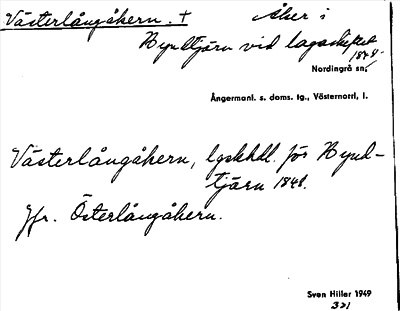 Västerlångåkern. †
Åker i
Byndtjärn vid lagaskiftet
1848.
Nordingrå sn,
Ångermanl. s. doms. tg., Västernorrl, l.
Västerlångåkern, lgskhdl. för Bynd-
tjärn 1848.
Jfr. Österlångåkern.
Sven Hiller 1949
321